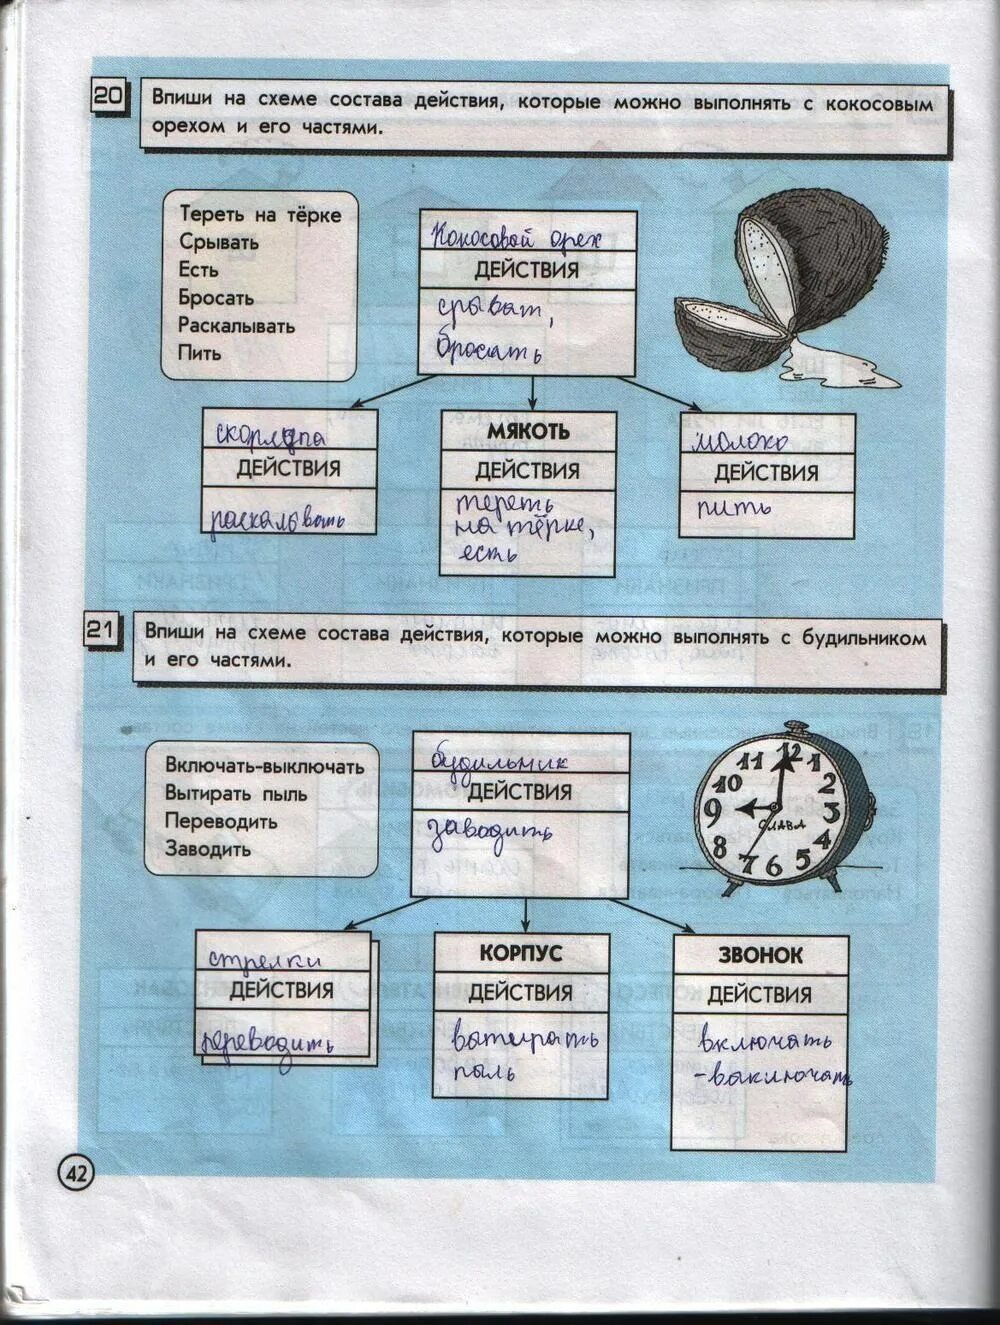 20
Впиши на схеме состава действия, которые можно выполнять с кокосовым
орехом и его частями.
Тереть на тёрке
Срывать
Есть
Бросать
Раскалывать
Пить
Кокосовой орех
ДЕЙСТВИЯ
срыват,
бросать
скорлупа
ДЕЙСТВИЯ
раскалывать
МЯКОТЬ
ДЕЙСТВИЯ
тереть
на тёрке,
есть
молоко
ДЕЙСТВИЯ
пить
21
Впиши на схеме состава действия, которые можно выполнять с будильником
и его частями.
Включать-выключать
Вытирать пыль
Переводить
Заводить
будильник
ДЕЙСТВИЯ
заводить
12
11 1
10 2
9 3
8 4
7 6 5
СЛАВА
стрелки
ДЕЙСТВИЯ
переводить
КОРПУС
ДЕЙСТВИЯ
вытирать
пыль
ЗВОНОК
ДЕЙСТВИЯ
включать
-выключать
42